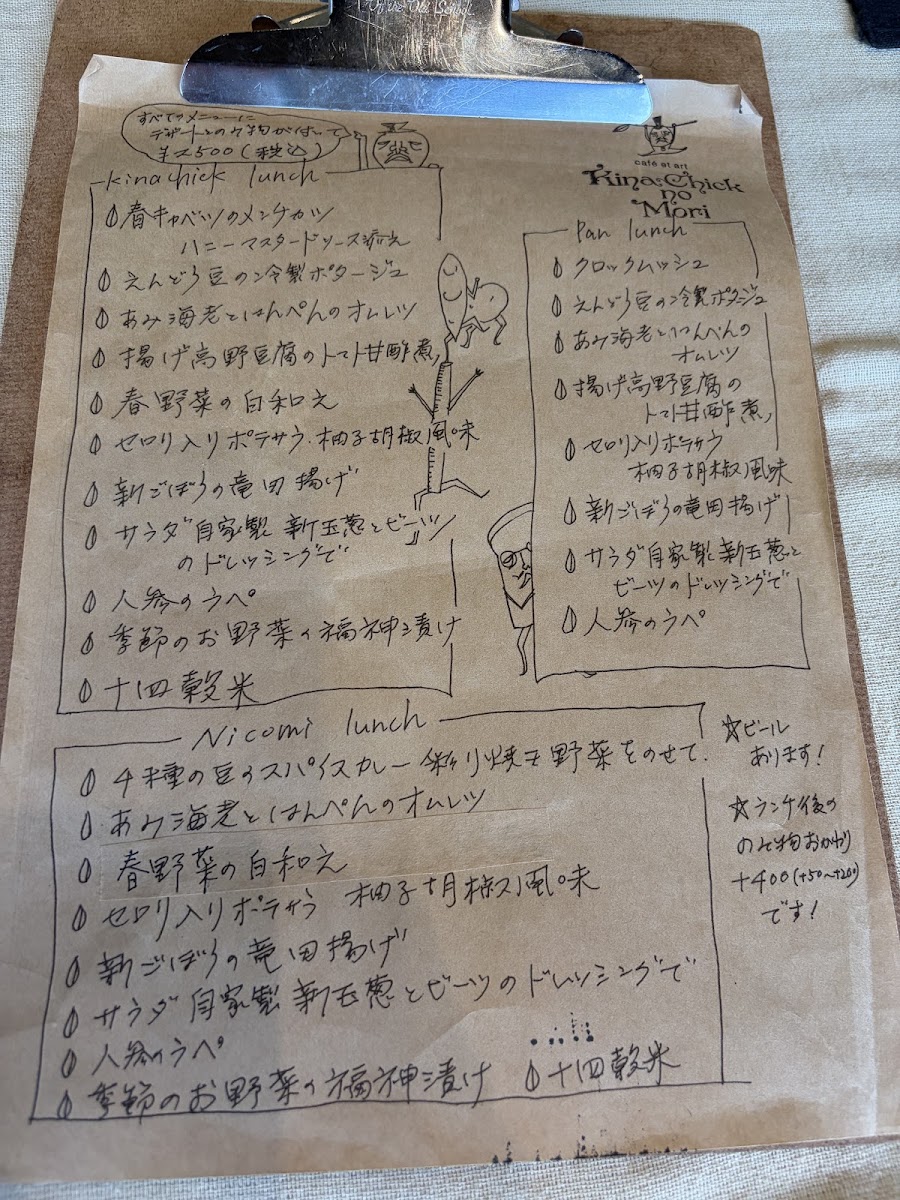 すべてのメニューに
デザートとのみ物がついて
¥2500(税込)
café at art
Kina Chick
no
Mori
Kinachick lunch
春キャベツのメンチカツ
ハニーマスタードソース添え
えんどう豆の冷製ポタージュ
あみ海老とはんぺんのオムレツ
揚げ高野豆腐のトマト甘酢煮
春野菜の白和え
セロリ入りポテサラ 柚子胡椒風味
新ごぼうの竜田揚げ
サラダ 自家製 新玉葱とビーツ
のドレッシングで
人参のラペ
季節のお野菜の福神漬け
十四穀米
Pan lunch
クロックムッシュ
えんどう豆の冷製ポタージュ
あみ海老とはんぺんの
オムレツ
揚げ高野豆腐の
トマト甘酢煮
セロリ入りポテサラ
柚子胡椒風味
新ごぼうの竜田揚げ
サラダ 自家製 新玉葱と
ビーツのドレッシングで
人参のラペ
Nicomi lunch
4種の豆のスパイスカレー 彩り焼き野菜をのせて
あみ海老とはんぺんのオムレツ
春野菜の白和え
セロリ入りポテサラ 柚子胡椒風味
新ごぼうの竜田揚げ
サラダ 自家製 新玉葱とビーツのドレッシングで
人参のラペ
季節のお野菜の福神漬け 十四穀米
☆ビール
あります!
☆ランチ後の
のみ物おかわり
+400(+50~+200)
です!